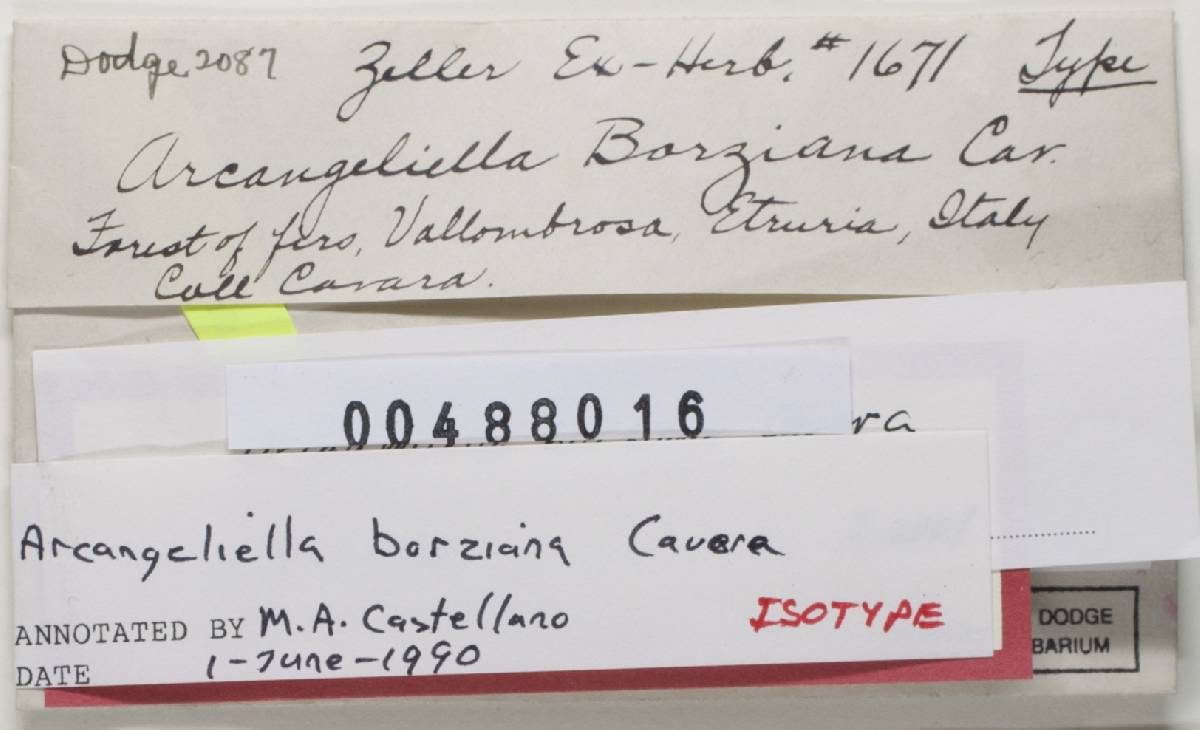 Dodge 2087 Zeller Ex-Herb. #1671 Type
Arcangeliella Borziana Cav.
Forest of firs, Vallombrosa, Etruria, Italy
Coll Cavara.
00488016
ra
Arcangeliella borziana Cavara
ISOTYPE
ANNOTATED BY M.A. Castellano
DATE 1-June-1990
DODGE
BARIUM